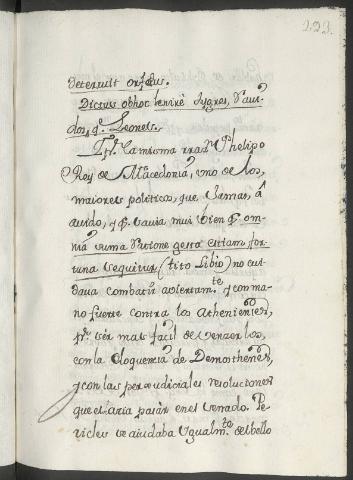 223.
deterruit orfeus.
Dictus obhoc lenire tygres, Savi-
dos, q.e Leones.
P.r la misma rrad.n Phelipo
Rey de Macedonia, uno de los,
maiores politicos, que Jamas, â
avido, y q.e savia mui bien q.e om-
nia suma ratione gesta etiam for-
tuna sequitur (tito Libio) no cui-
dava combatir aviertam.te y con ma-
no fuerte contra los Athenienses,
p.r ser mas facil de venzer los,
con la eloquencia de Demosthenes,
y con las perjudiciales resoluciones
que el aria pasar en el senado. Pe-
ricles se aiudaba ygualm.te del bello